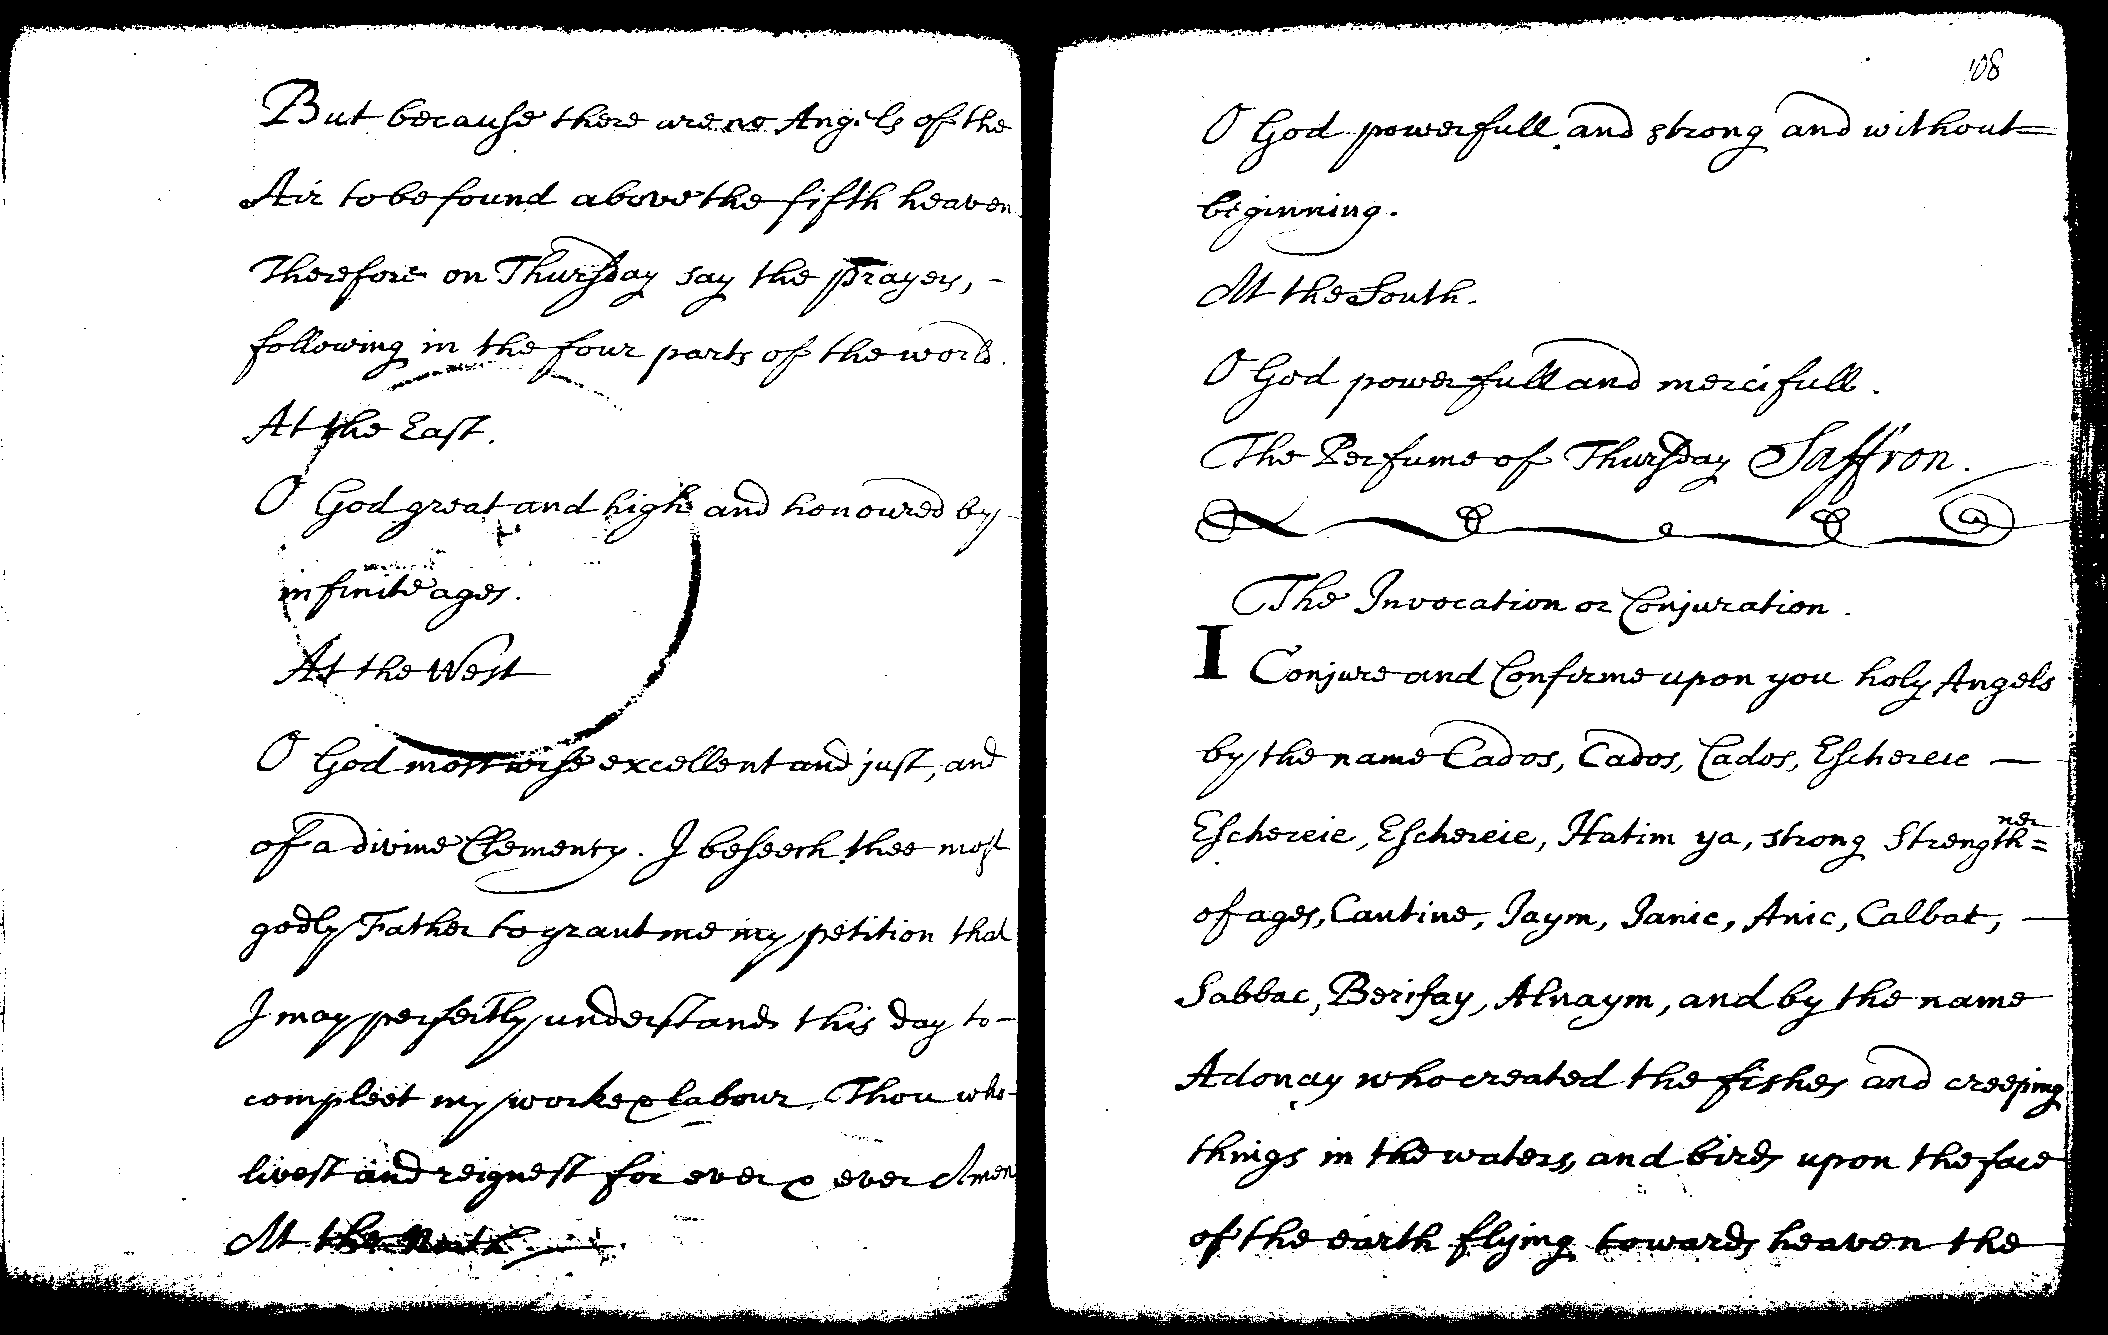 But because there are no Angels of the
Air to be found above the fifth heaven
Therefore on Thursday say the prayers, -
following in the four parts of the world.
At the East.
O God great and high and honoured by
infinite ages.
At the West
O God most wise excellent and just, and
of a divine Clemency. I beseech thee most
godly Father to grant me my petition that
I may perfectly understand this day to-
compleet my worke & labour, Thou who
livest and reignest for ever & ever Amen
At the North
108
O God powerfull and strong and without=
beginning.
At the South.
O God powerfull and mercifull.
The Perfume of Thursday Saffron.
The Invocation or Conjuration.
I Conjure and Confirme upon you holy Angels
by the name Cados, Cados, Cados, Eschereie —
Eschereie, Eschereie, Hatim ya, strong Strengthner=
of ages, Cantine, Jaym, Janic, Anic, Calbat, —
Sabbac, Berifay, Alnaym, and by the name
Adonay who created the fishes and creeping
things in the waters, and birds upon the face
of the earth flying towards heaven the